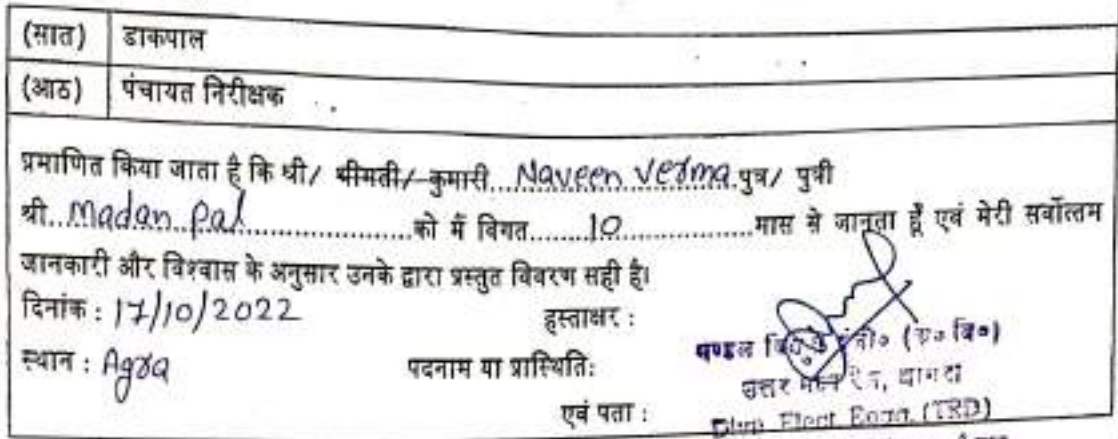 (सात) डाकपाल
(आठ) पंचायत निरीक्षक
प्रमाणित किया जाता है कि श्री/ श्रीमती/ कुमारी...Naveen Verma.पुत्र/ पुत्री
श्री...Madan Pal....................को मैं विगत........10....................मास से जानता हूँ एवं मेरी सर्वोत्तम
जानकारी और विश्वास के अनुसार उनके द्वारा प्रस्तुत विवरण सही है।
दिनांक : 17/10/2022 हस्ताक्षर :
स्थान : Agra पदनाम या प्रास्थिति: मण्डल
उत्तर आगरा
एवं पता : Elect. Engg. (TRD)